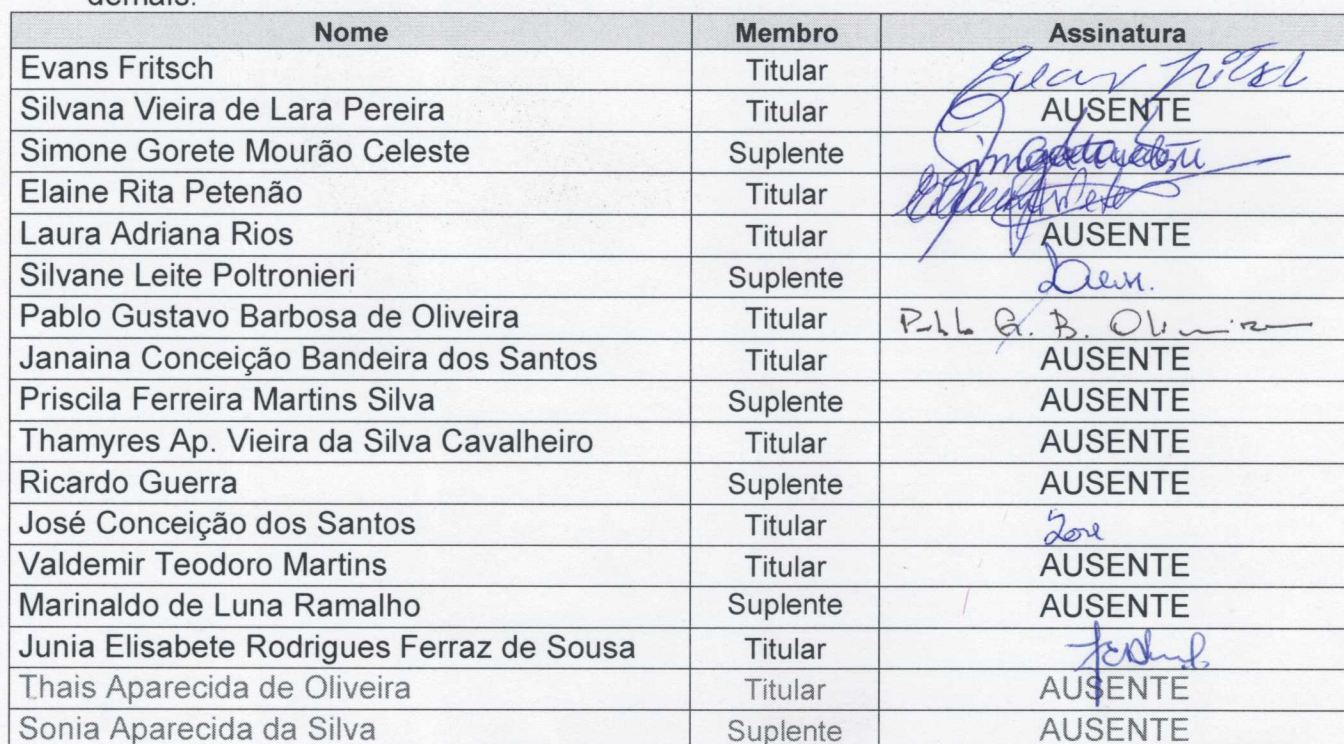 demais.
Nome Membro Assinatura
Evans Fritsch Titular Evans Fritsch
Silvana Vieira de Lara Pereira Titular AUSENTE
Simone Gorete Mourão Celeste Suplente
Elaine Rita Petenão Titular
Laura Adriana Rios Titular AUSENTE
Silvane Leite Poltronieri Suplente
Pablo Gustavo Barbosa de Oliveira Titular Pablo G. B. Oliveira
Janaina Conceição Bandeira dos Santos Titular AUSENTE
Priscila Ferreira Martins Silva Suplente AUSENTE
Thamyres Ap. Vieira da Silva Cavalheiro Titular AUSENTE
Ricardo Guerra Suplente AUSENTE
José Conceição dos Santos Titular José
Valdemir Teodoro Martins Titular AUSENTE
Marinaldo de Luna Ramalho Suplente AUSENTE
Junia Elisabete Rodrigues Ferraz de Sousa Titular
Thais Aparecida de Oliveira Titular AUSENTE
Sonia Aparecida da Silva Suplente AUSENTE